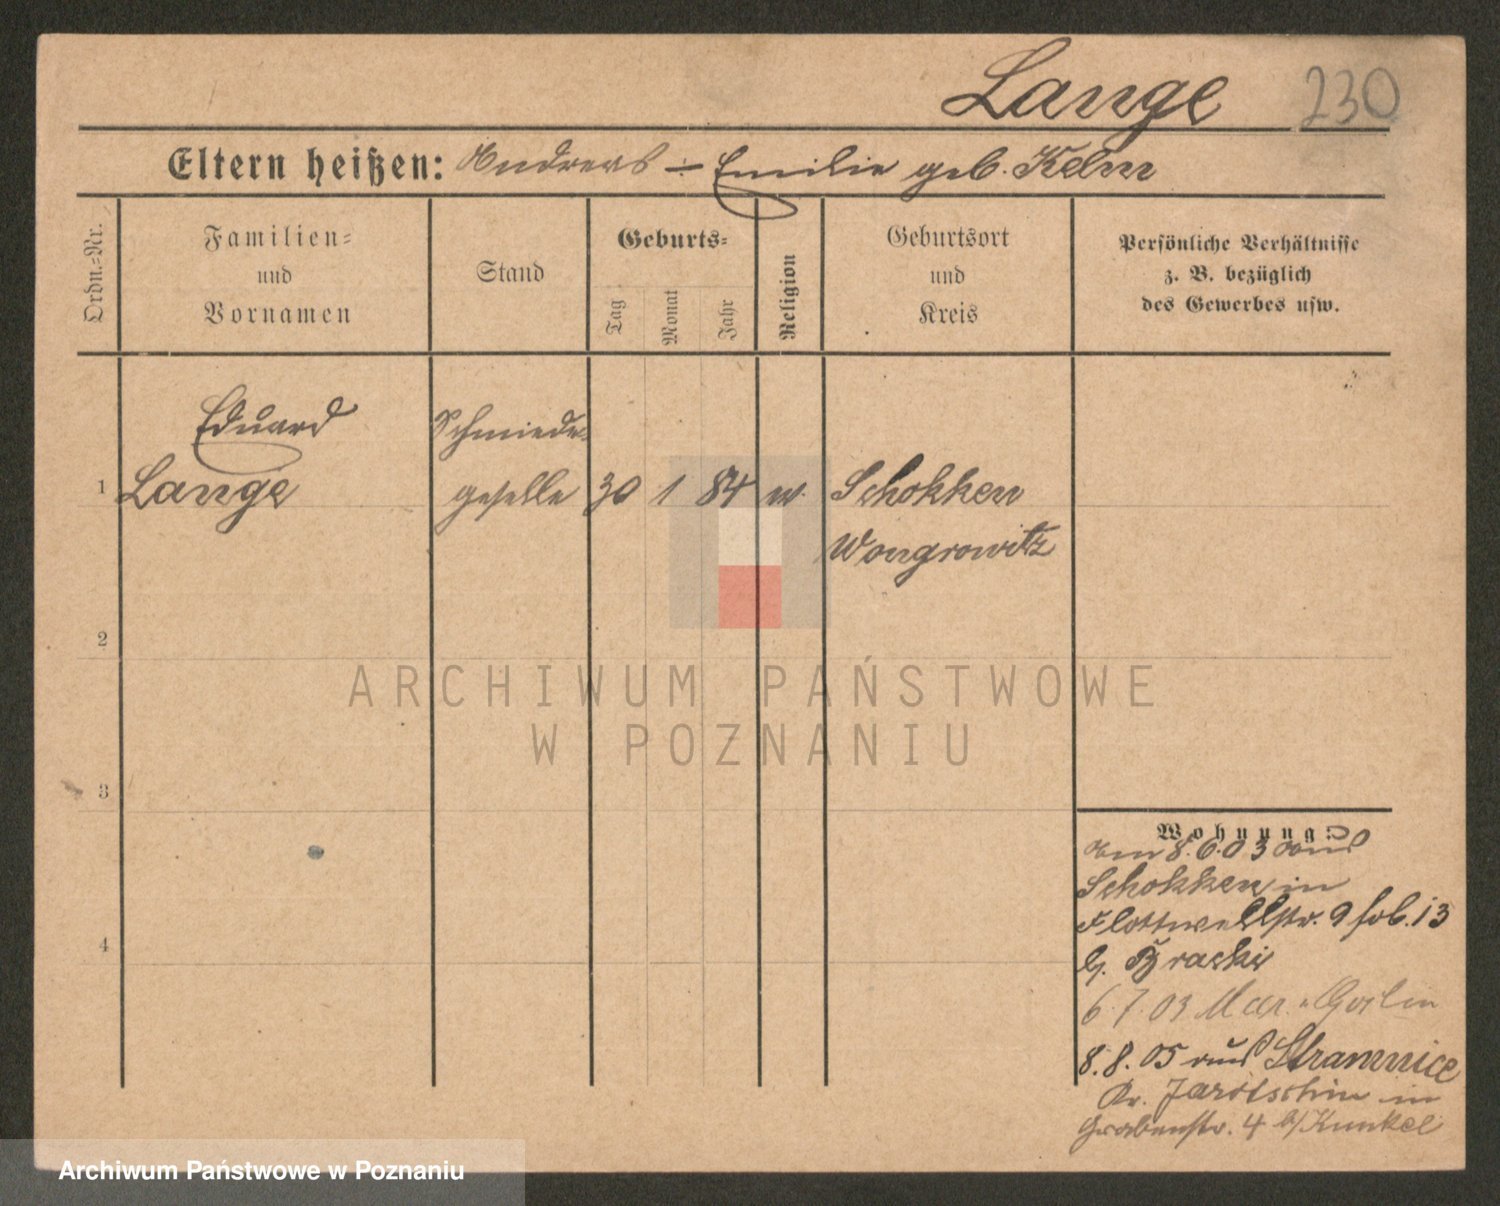 Lange 230
Eltern heißen: Andreas – Emilie geb. Kelm
Ordn.-Nr.
Familien-
und
Vornamen
Stand
Geburts-
Tag
Monat
Jahr
Religion
Geburtsort
und
Kreis
Persönliche Verhältnisse
z. B. bezüglich
des Gewerbes usw.
Eduard Schmiede-
1 Lange geselle 30 1 84 Schokken
Wongrowitz
2
ARCHIWUM PAŃSTWOWE
W POZNANIU
3
Wohnung:
am 8.6.03 aus
Schokken in
Flottwellstr. 9 13
b.
6.7.03
8.8.05 aus Stramnice
Kr. Jarotschin in
Grabenstr. 4 b/Kunkel
4
Archiwum Państwowe w Poznaniu